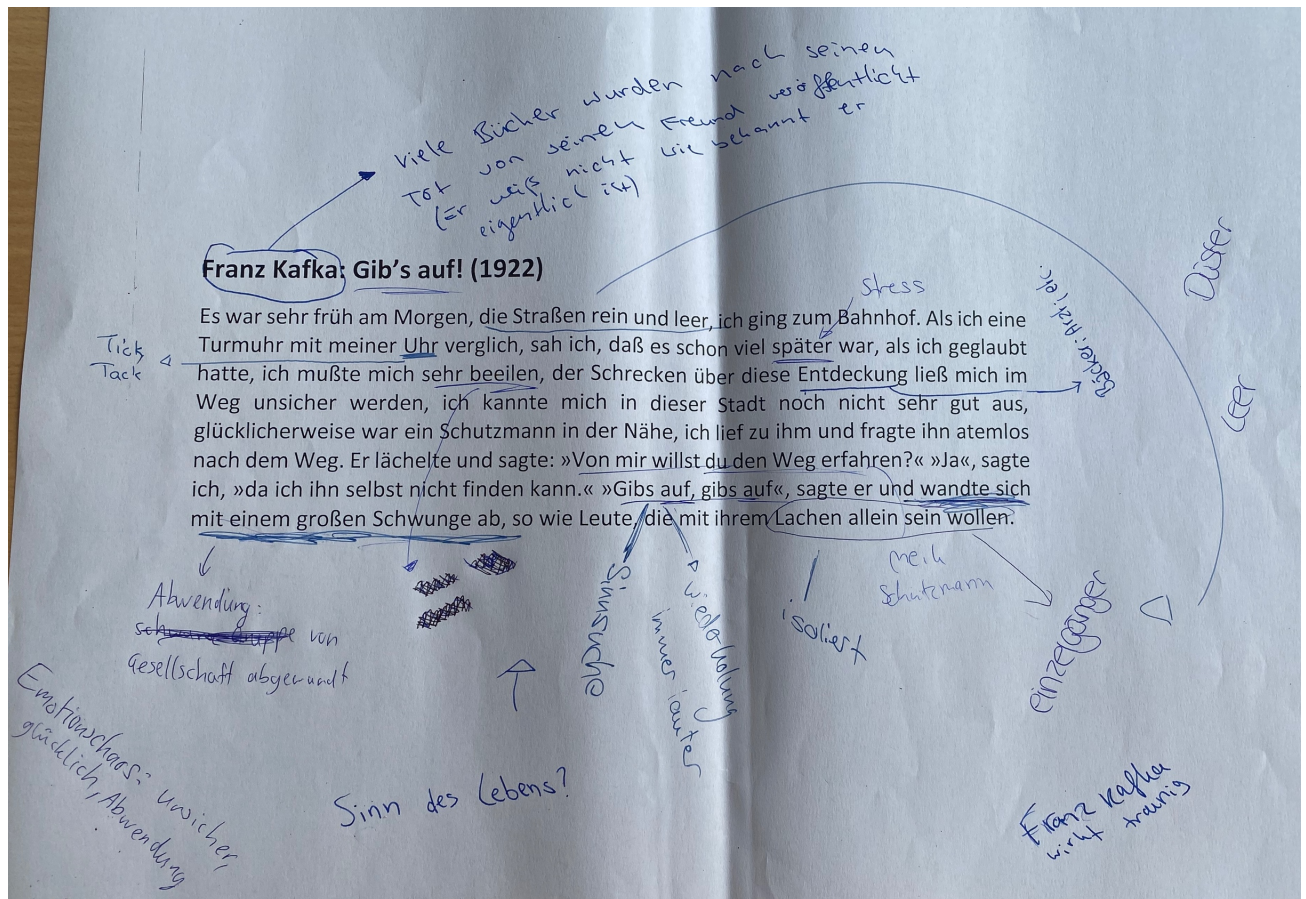 viele Bücher wurden nach seinen
Tot von seinen Freund veröffentlicht
(Er weiß nicht wie bekannt er
eigentlich ist)
Franz Kafka: Gib's auf! (1922)
Stress
Es war sehr früh am Morgen, die Straßen rein und leer, ich ging zum Bahnhof. Als ich eine
Turmuhr mit meiner Uhr verglich, sah ich, daß es schon viel später war, als ich geglaubt
hatte, ich mußte mich sehr beeilen, der Schrecken über diese Entdeckung ließ mich im
Weg unsicher werden, ich kannte mich in dieser Stadt noch nicht sehr gut aus,
glücklicherweise war ein Schutzmann in der Nähe, ich lief zu ihm und fragte ihn atemlos
nach dem Weg. Er lächelte und sagte: »Von mir willst du den Weg erfahren?« »Ja«, sagte
ich, »da ich ihn selbst nicht finden kann.« »Gibs auf, gibs auf«, sagte er und wandte sich
mit einem großen Schwunge ab, so wie Leute, die mit ihrem Lachen allein sein wollen.
Tick
Tack
Bäcker, Arzt, etc.
Düster
Leer
Abwendung:
von
Gesellschaft abgewandt
Sinnsuche
wiederholung
immer lauter
isoliert
Schutzmann
einzelgänger
Emotionschaos: unsicher,
glücklich, Abwendung
Sinn des Lebens?
Franz Kafka
wirkt traurig